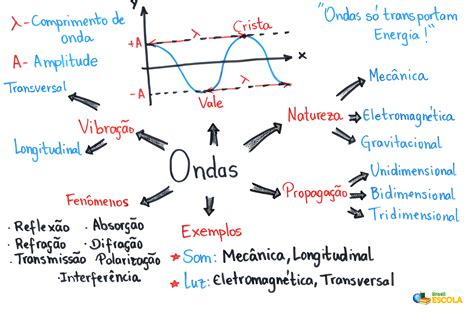 λ-Comprimento de
onda
A- Amplitude
y
+A
-A
x
λ
λ
Crista
Vale
"Ondas só transportam
Energia!"
Ondas
Vibração
Transversal
Longitudinal
Natureza
Mecânica
Eletromagnética
Gravitacional
Propagação
Unidimensional
Bidimensional
Tridimensional
Fenômenos
· Reflexão · Absorção
· Refração · Difração
· Transmissão · Polarização
· Interferência
Exemplos
Som: Mecânica, Longitudinal
Luz: Eletromagnética, Transversal
Brasil
ESCOLA